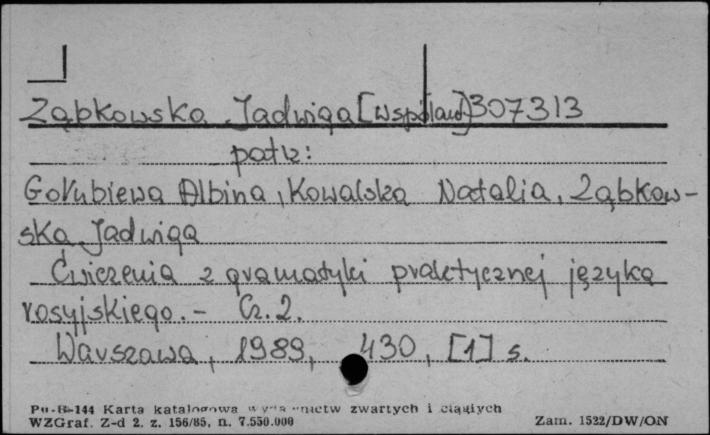 Ząbkowska Jadwiga [współaut.] 307313
patrz:
Gołubiewa Albina, Kowalska Natalia, Ząbkow-
ska Jadwiga
Ćwiczenia z gramatyki praktycznej języka
rosyjskiego. – Cz. 2.
Warszawa, 1989, 430, [1] s.
Pu-B-144 Karta katalogowa wydawnictw zwartych i ciągłych
WZGraf. Z-d 2. z. 156/85, n. 7.550.000 Zam. 1522/DW/ON